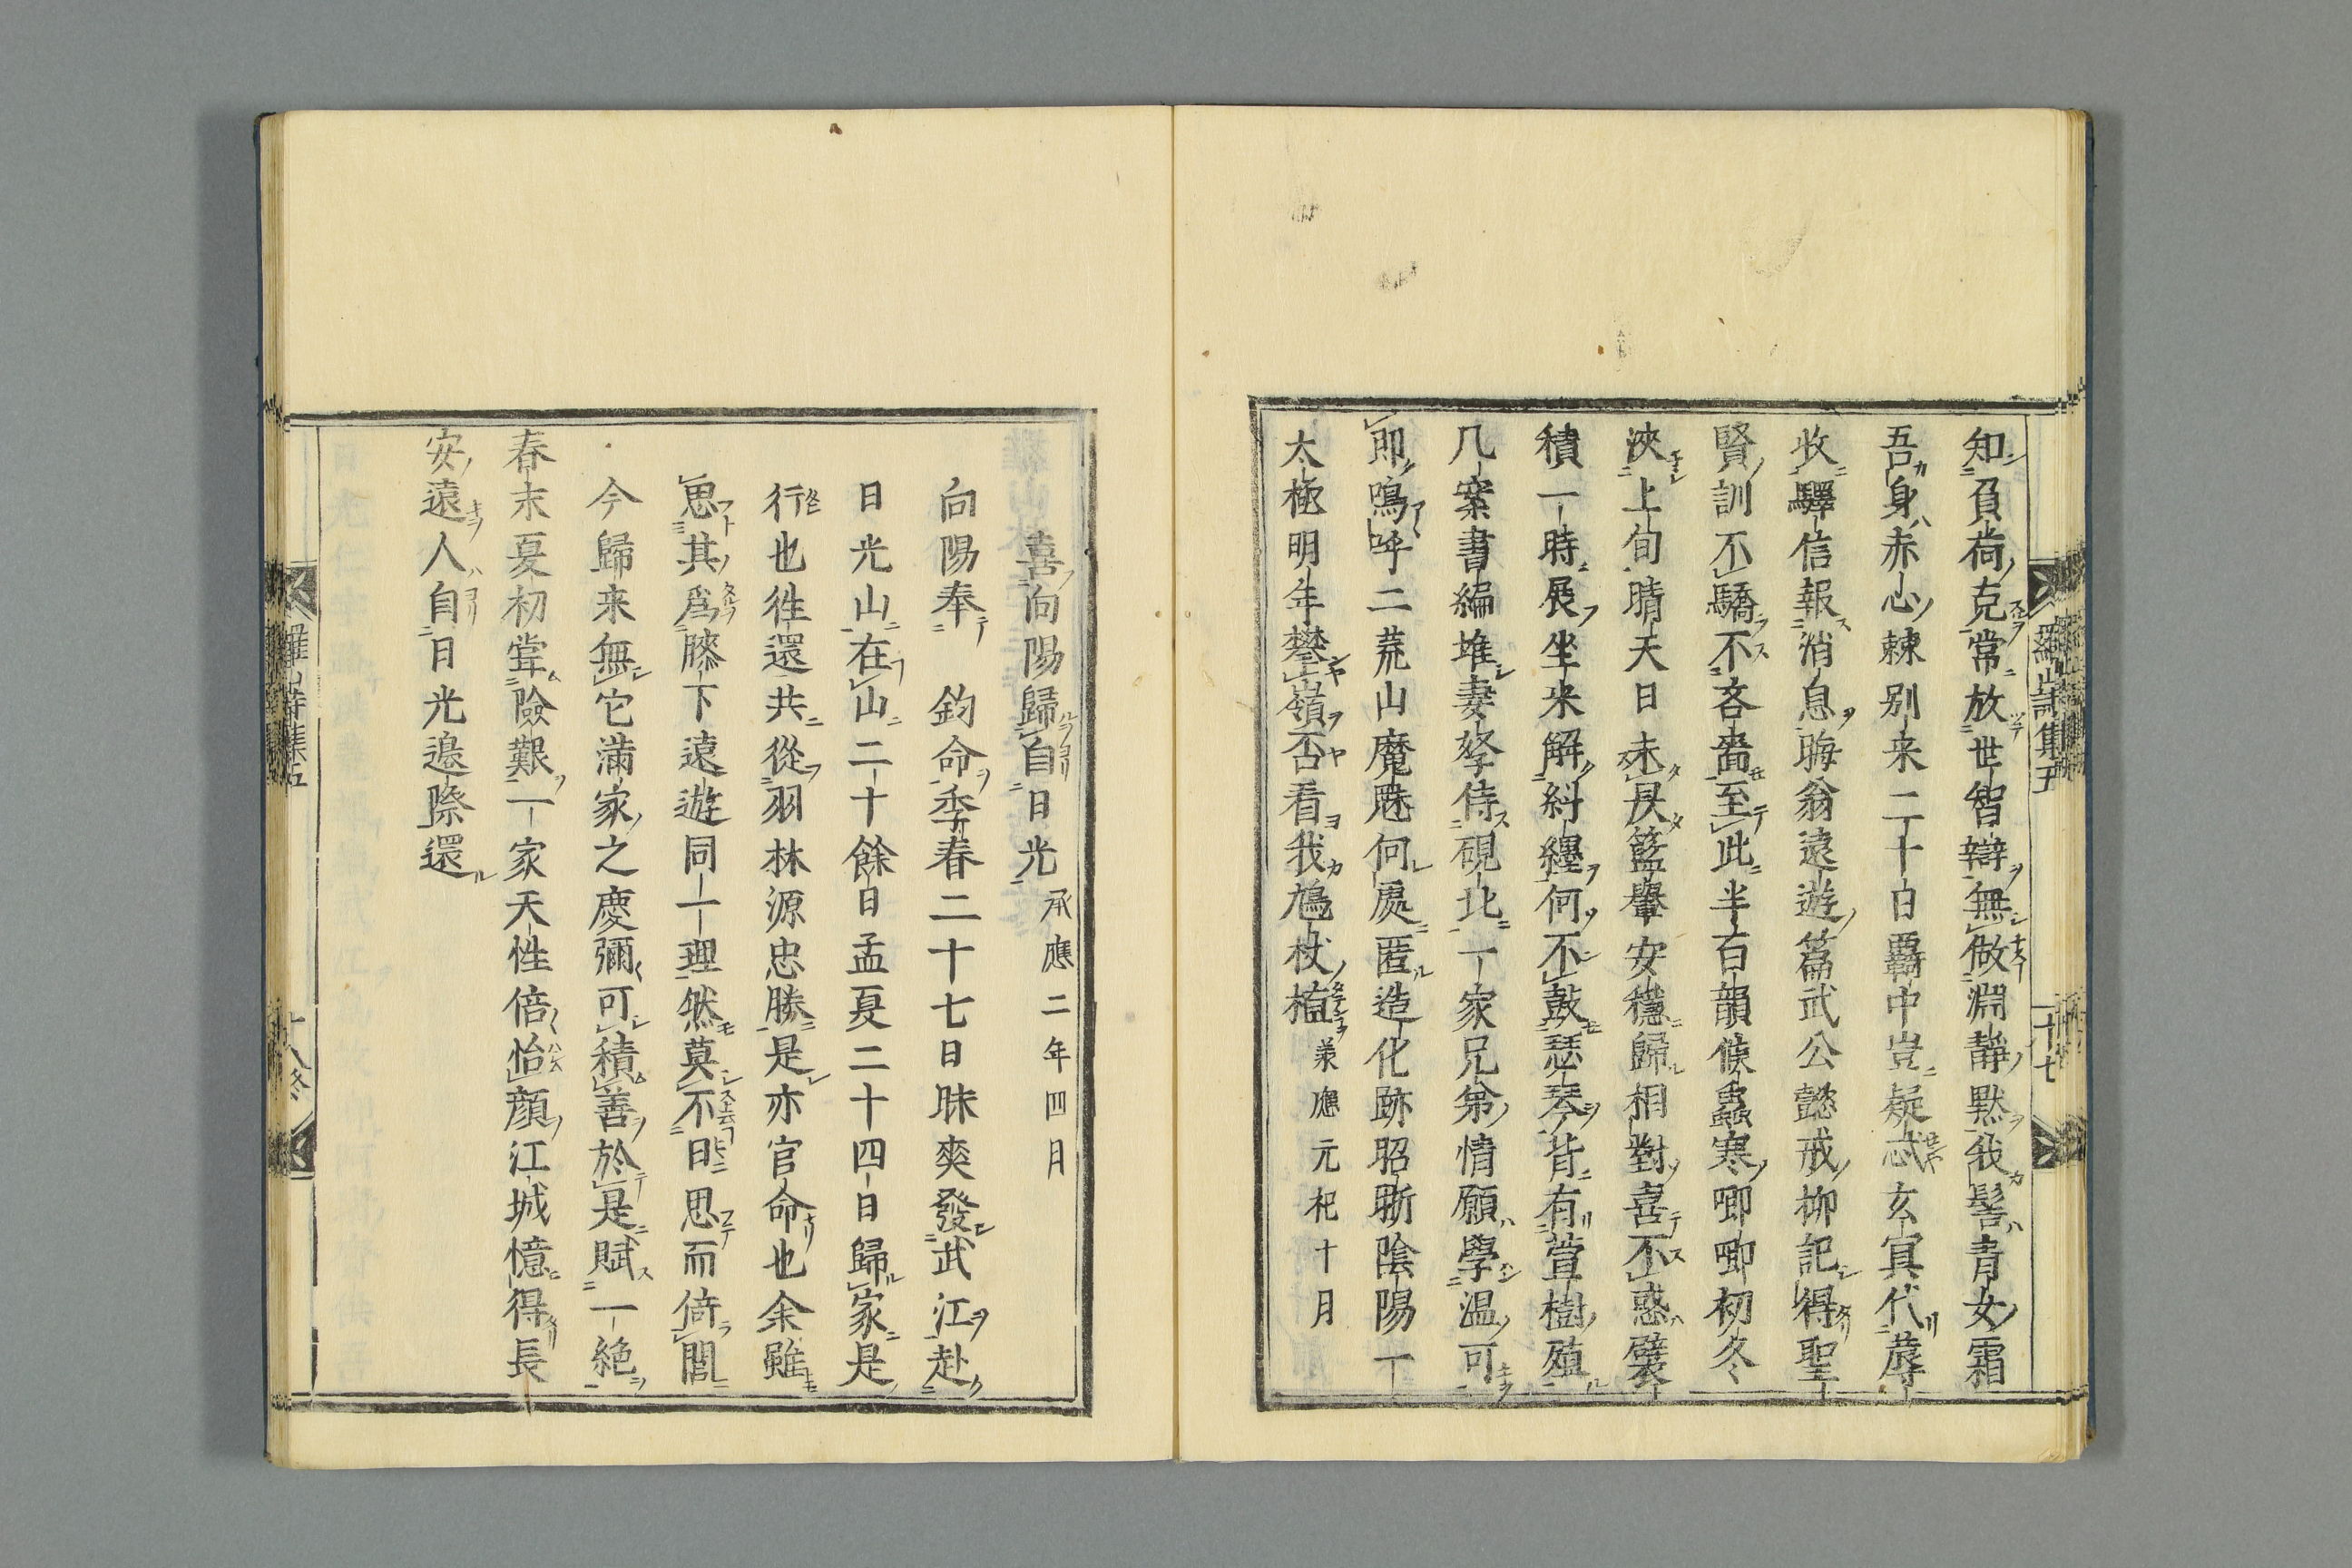 知負荷克常放世智辯無做淵靜默我髻青女霜
吾身赤心棘別来二十白覇中豈疑忒玄冥代蓐
收驛信報消息晦翁遠遊篇武公懿戒抑記得聖
賢訓不驕不吝嗇至此半百韻候蟲寒唧唧初冬
浹上旬晴天日未昃籃轝安穩歸相對喜不惑襞
積一時展坐来解糾纆何不鼓瑟琴背有萱樹殖
几案書編堆妻孥侍硯北一家兄弟情願學温可
即嗚呼二荒山魔魅何處匿造化跡昭晰陰陽一
太極明年攀嶺否看我鳩杖植 承應元杞十月
羅山詩集五 十七
喜向陽歸自日光 承應二年四月
向陽奉 鈞命季春二十七日昧爽發武江赴
日光山在山二十餘日孟夏二十四日歸家是
行也徃還共從羽林源忠勝是亦官命也余雖
思其爲膝下遠遊同一理然莫不日思而倚閭
今歸来無它滿家之慶彌可積善於是賦一絶
春末夏初甞險艱一家天性倍怡顔江城憶得長
安遠人自日光邉際還
羅山詩集五 十八終